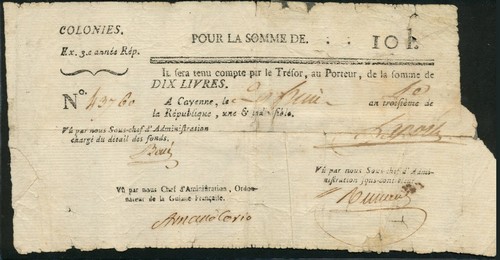 COLONIES. POUR LA SOMME DE. . . . 10 l.
Ex. 3.e année Rép.
Il sera tenu compte par le Trésor, au Porteur, de la somme de
DIX LIVRES.
No. 43760 A Cayenne, le an troisième de
la République, une & indivisible.
Vû par nous Sous-chef d'Administration
chargé du détail des fonds.
Vû par nous Sous-chef d'Admi-
nistration
Vû par nous Chef d'Administration, Ordon-
nateur de la Guiane Française.